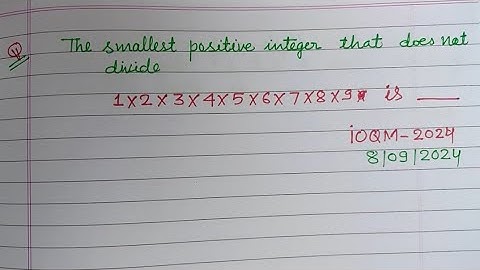 Q
The smallest positive integer that does not
divide
1×2×3×4×5×6×7×8×9 is ___
iOQM-2024
8/09/2024